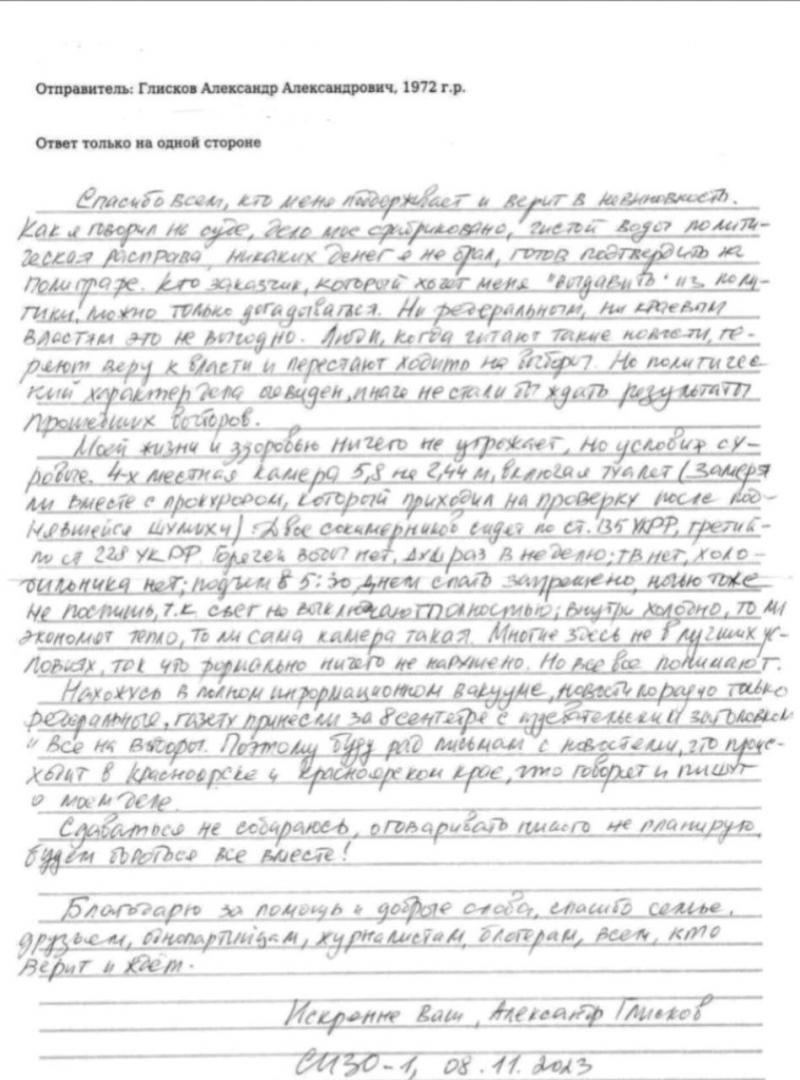 Отправитель: Глисков Александр Александрович, 1972 г.р.
Ответ только на одной стороне
Спасибо всем, кто меня поддерживает и верит в невиновность.
Как я говорил на суде, дело мое сфабриковано, чистой воды полити-
ческая расправа, никаких денег я не брал, готов подтвердить на
полиграфе. Кто заказчик, который хочет меня "выдавить" из поли-
тики, можно только догадываться. Ни федеральным, ни краевым
властям это не выгодно. Люди, когда читают такие новости, те-
ряют веру к власти и перестают ходить на выборы. Но политичес-
кий характер дела очевиден, иначе не стали бы ждать результаты
прошедших выборов.
Моей жизни и здоровью ничего не угрожает, но условия су-
ровые. 4-х местная камера 5,8 на 2,44 м, включая туалет (замеря
ли вместе с прокурором, который приходил на проверку после под-
нявшейся шумихи). Двое сокамерников сидят по ст. 135 УКРФ, третий-
по ст 228 УК РФ. Горячей воды нет, душ раз в неделю; ТВ нет, холо-
дильника нет; подъем в 5:30, днем спать запрещено, ночью тоже
не поспишь, т.к. свет не выключают полностью; внутри холодно, то ли
экономят тепло, то ли сама камера такая. Многие здесь не в лучших ус-
ловиях, так что формально ничего не нарушено. Но все все понимают.
Нахожусь в полном информационном вакууме, новости по радио только
федеральные, газету принесли за 8 сентября с издевательским заголовком
"Все на выборы. Поэтому буду рад письмам с новостями, что проис-
ходит в Красноярске и Красноярском крае, что говорят и пишут
о моем деле.
Сдаваться не собираюсь, оговаривать никого не планирую,
будем бороться все вместе!
Благодарю за помощь и добрые слова, спасибо семье,
друзьям, однопартийцам, журналистам, блогерам, всем, кто
верит и ждёт.
Искренне Ваш, Александр Глисков
СИЗО-1, 08.11.2023